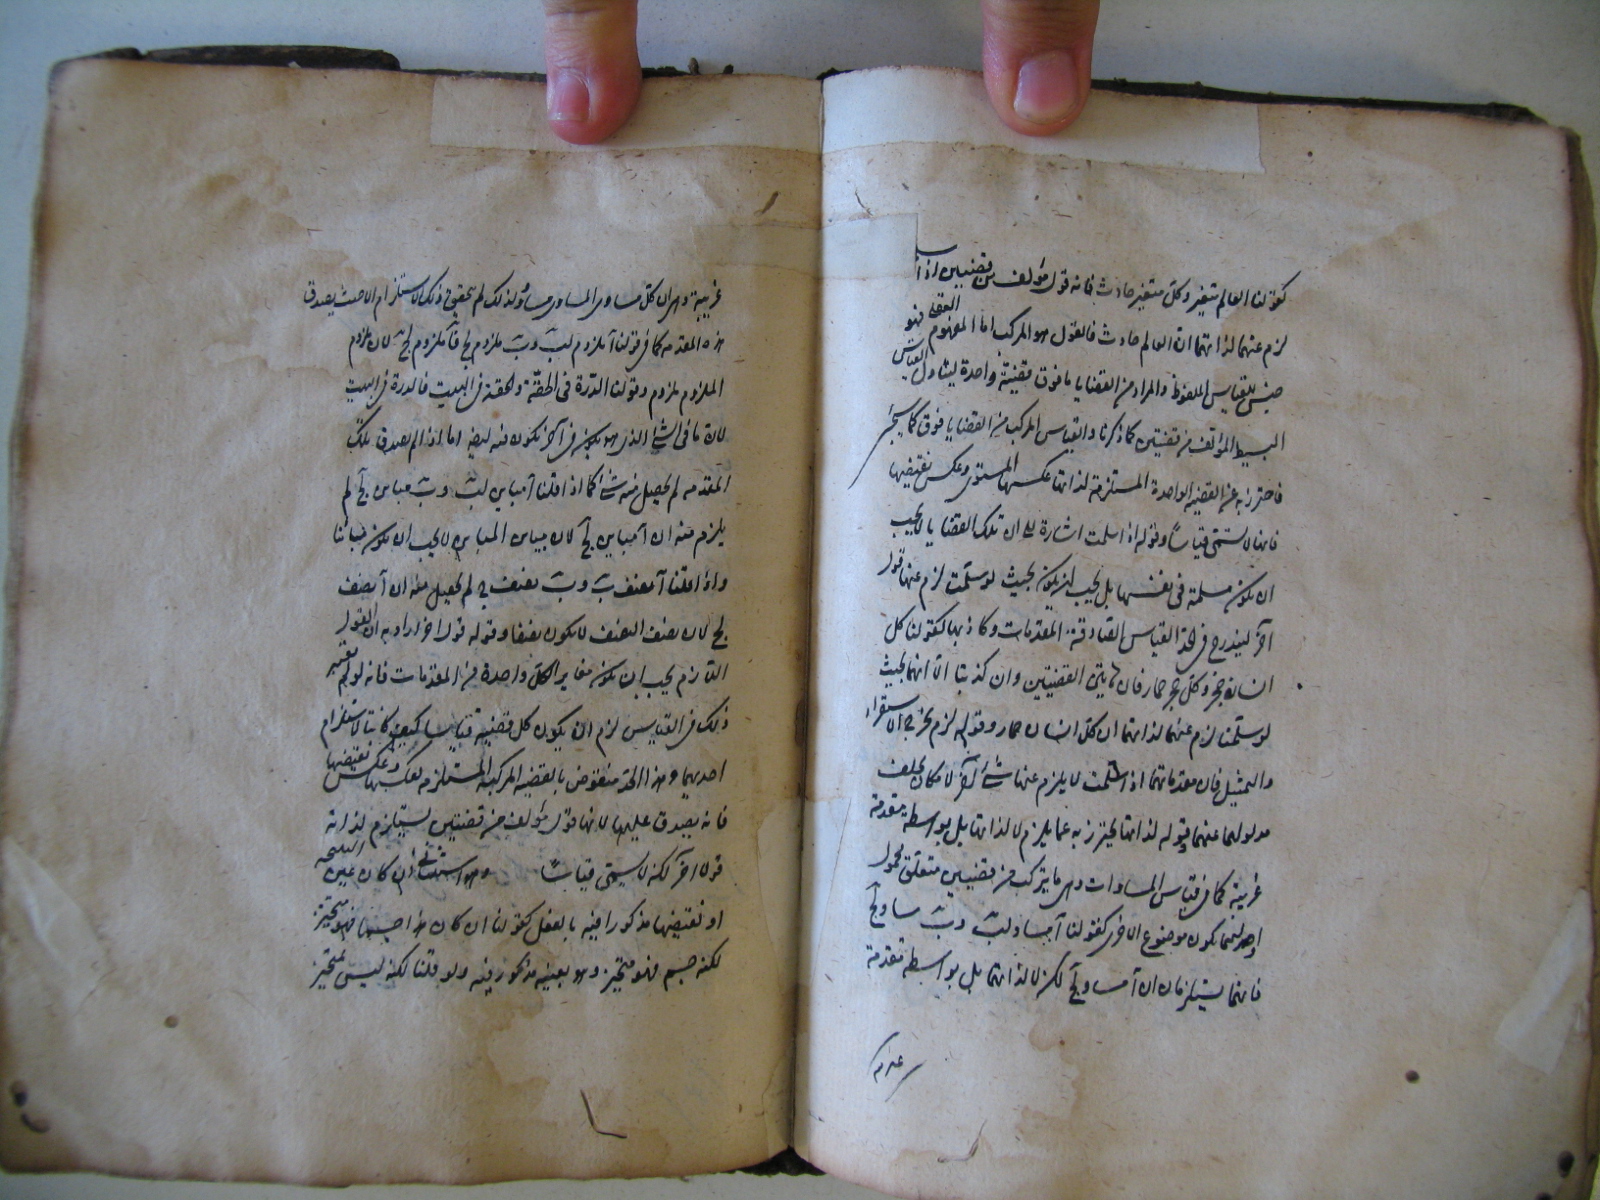 كقولنا العالم متغير وكل متغير حادث فانه قول مؤلف من قضيتين اذا سلمتا
لزم عنهما لذاتهما ان العالم حادث فالقول هو المركب اما المفهوم العقلي فهو
جنس للقياس الملفوظ والمراد من القضايا ما فوق قضية واحدة ليتناول القياس
البسيط المؤلف من قضيتين كما ذكرنا والقياس المركب من القضايا فوق كما يجئ
فاحترز به عن القضية الواحدة المستلزمة لذاتها عكسها المستوى وعكس نقيضها
فانها لا تسمى قياسا وقوله اذا سلمت اشارة الى ان تلك القضايا لا يجب
ان يكون مسلمة فى نفسها بل يجب ان يكون بحيث لو سلمت لزم عنها قول
آخر ليندرج فى الحد القياس الصادقة المقدمات وكاذبها كقولنا كل
انسان حجر وكل حجر حمار فان هاتين القضيتين وان كذبتا الا انهما بحيث
لو سلمتا لزم عنهما لذاتهما ان كل انسان حمار وقوله لزم يخرج الاستقراء
والتمثيل فان مقدماتهما اذا سلمت لا يلزم عنها شئ آخر لامكان تخلف
مدلوليهما عنهما وقوله لذاتها يحترز به عما يلزم لا لذاتها بل بواسطة مقدمة
غريبة كما فى قياس المساوات وهى ما يتركب من قضيتين متعلق محمول
احديهما يكون موضوع الاخرى كقولنا آ مساو لب وب مساو لج
فانهما يستلزمان ان آ مساو لج لكن لا لذاتهما بل بواسطة مقدمة
غريبة
غريبة وهى ان كل مساوى المساوى مساو ولذلك لم يتحقق ذلك الاستلزام الا حيث يصدق
هذه المقدمة كما فى قولنا آ ملزوم لب وب ملزوم لج فآ ملزوم لج لان ملزوم
الملزوم ملزوم وقولنا الدرة فى الحقة والحقة فى البيت فالدرة فى البيت
لان ما فى الشئ الذى هو يكون فى آخر يكون فيه ايضا اما اذا لم يصدق تلك
المقدمة لم يحصل منه شئ كما اذا قلنا آ مباين لب وب مباين لج لم
يلزم منه ان آ مباين لج لان مباين المباين لا يجب ان يكون مباينا
واذا قلنا آ نصف ب وب نصف ج لم يحصل منه ان آ نصف
لج لان نصف النصف لا يكون نصفا وقوله قول اخر اراد به ان القول
اللازم يجب ان يكون مغاير الكل واحدة من المقدمات فانه لو لم يعتبر
ذلك فى القياس لزم ان يكون كل قضيتين قياسا كيف كانتا لاستلزام
احديهما وهذا الحد منقوض بالقضية المركبة المستلزمة لعكسها وعكس نقيضها
فانه يصدق عليها لانها قول مؤلف من قضيتين يستلزم لذاته
قولا آخر لكنه لا يسمى قياسا وهو استثنائى ان كان عين النتيجة
او نقيضها مذكورا فيه بالفعل كقولنا ان كان هذا جسما فهو متحيز
لكنه جسم فهو متحيز وهو بعينه مذكور فيه ولو قلنا لكنه ليس بمتحيز